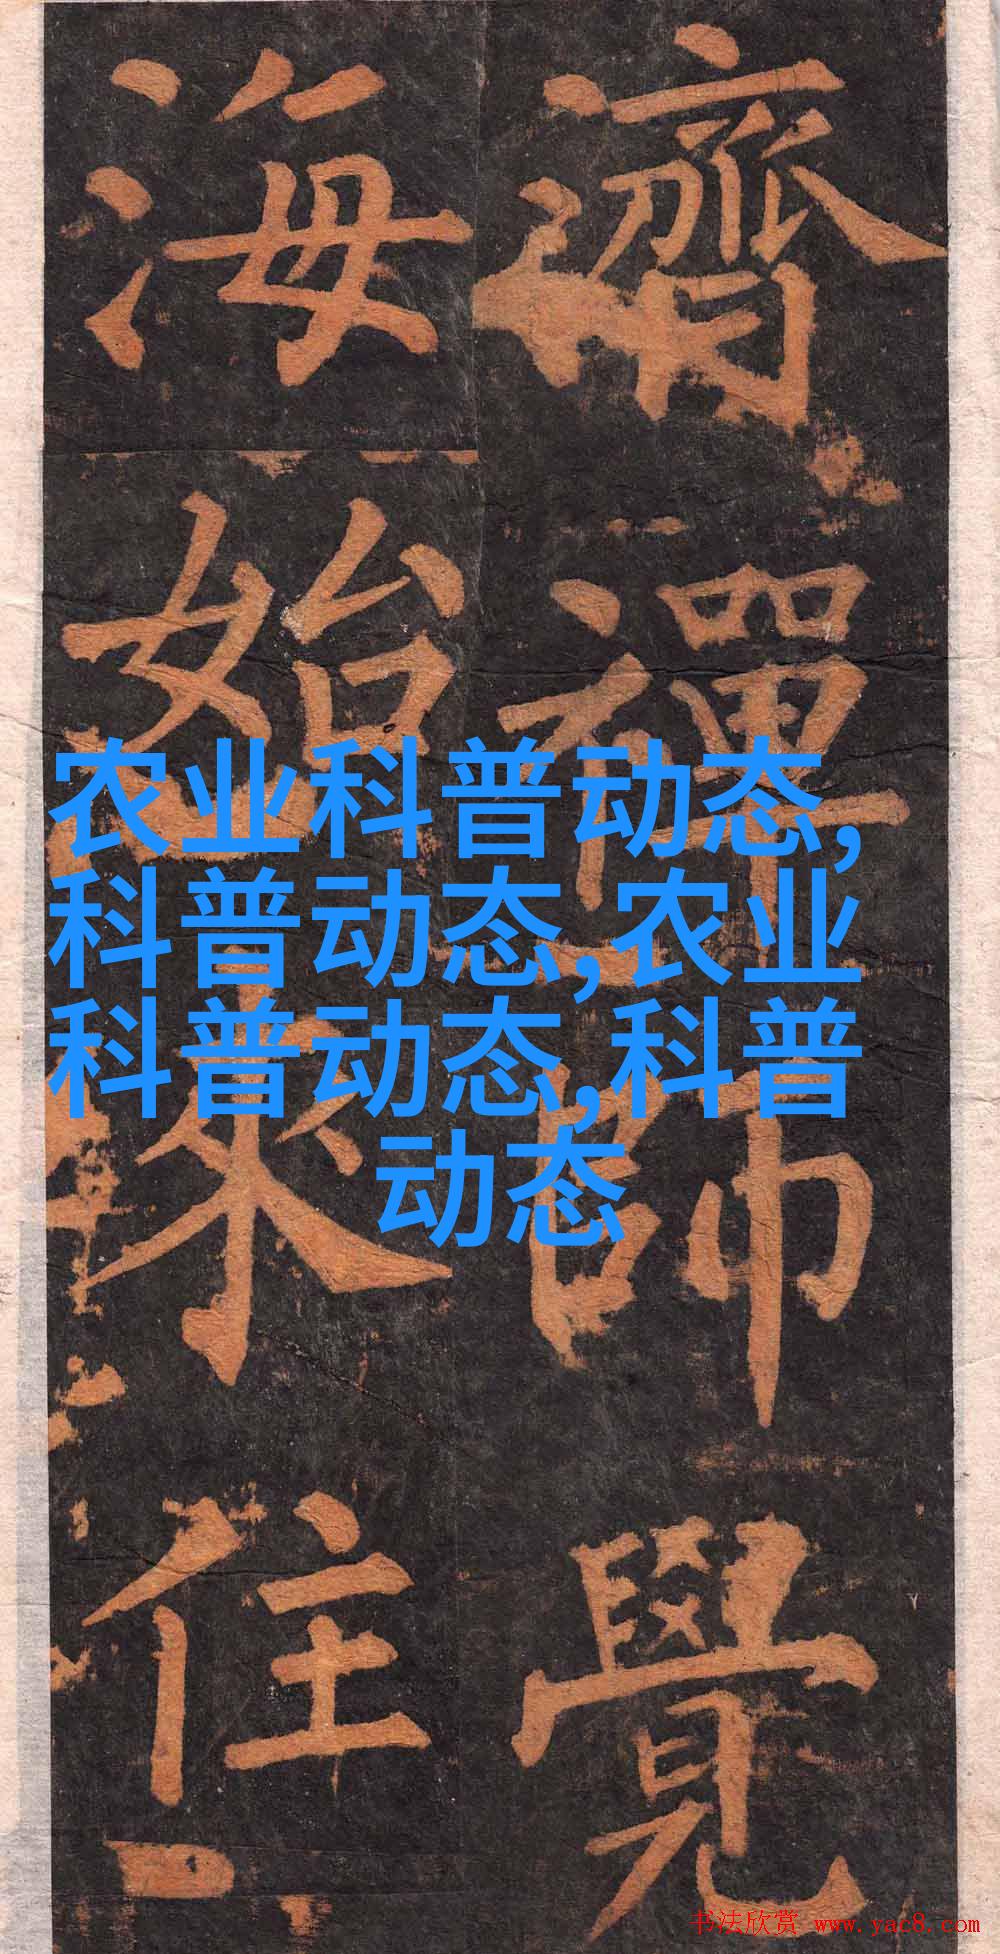 濟禪師覺
海始來住
农业科普动态,
科普动态,农业
科普动态,科普
动态
书法欣赏 www.yac8.com